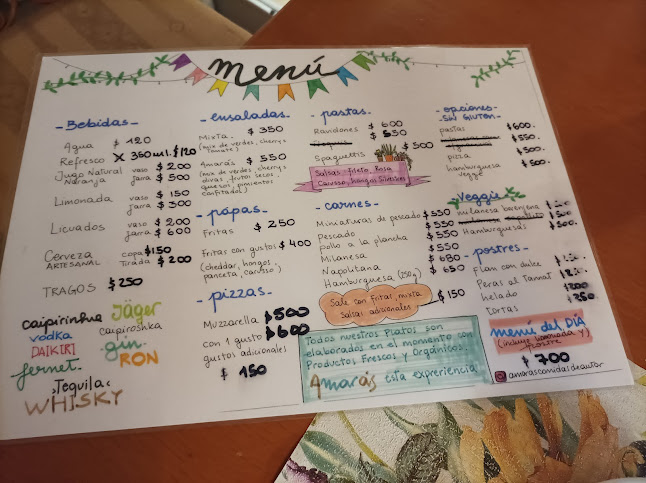 menú
-Bebidas-
Agua $ 120
Refresco X 350 ml. $120
Jugo Natural vaso $ 200
Naranja jarra $ 500
Limonada vaso $ 150
jarra $ 300
Licuados vaso $ 200
jarra $ 600
Cerveza copa $ 150
ARTESANAL Tirada $ 200
TRAGOS $ 250
caipirinha Jäger
vodka caipiroshka
DAIKIRI gin
fernet. RON
Tequila
WHISKY
-ensaladas-
MixTa $ 350
(mix de verdes, cherrys
tomate)
Amarás $ 550
(mix de verdes, cherrys
olivas, frutos secos,
quesos, pimientos
confitados)
-papas-
Fritas $ 250
Fritas con gustos $ 400
(cheddar, hongos,
panceta, caruso)
-pizzas-
Muzzarella $500
con 1 gusto $600
gustos adicionales
$ 150
-pastas-
Raviolones $ 600
$ 530
Spaguettis $ 500
Salsas: fileto, Rosa
Carusso, hongos Silvestres
-carnes-
Miniaturas de pescado $ 550
Pescado $ 550
pollo a la plancha $ 550
Milanesa $ 550
Napolitana $ 680
Hamburguesa (250g) $ 650
Sale con fritas, mixta
Salsas adicionales $ 150
Todos nuestros Platos son
elaborados en el momento con
Productos Frescos y Orgánicos.
Amarás esta experiencia
-opciones-
SIN GLUTEN-
pastas $600.
$550.
pizza $500.
hamburguesa $500.
veggie
Veggie
milanesa berenjena
Hamburguesas $500.
-postres-
Flan con dulce
Peras al Tannat
helado
tortas
menú del DÍA
(incluye limonada y
postre)
$ 700
amarascomidasdeautor